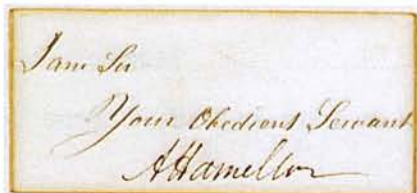 I am Sir
Your Obedient Servant
AHamilton